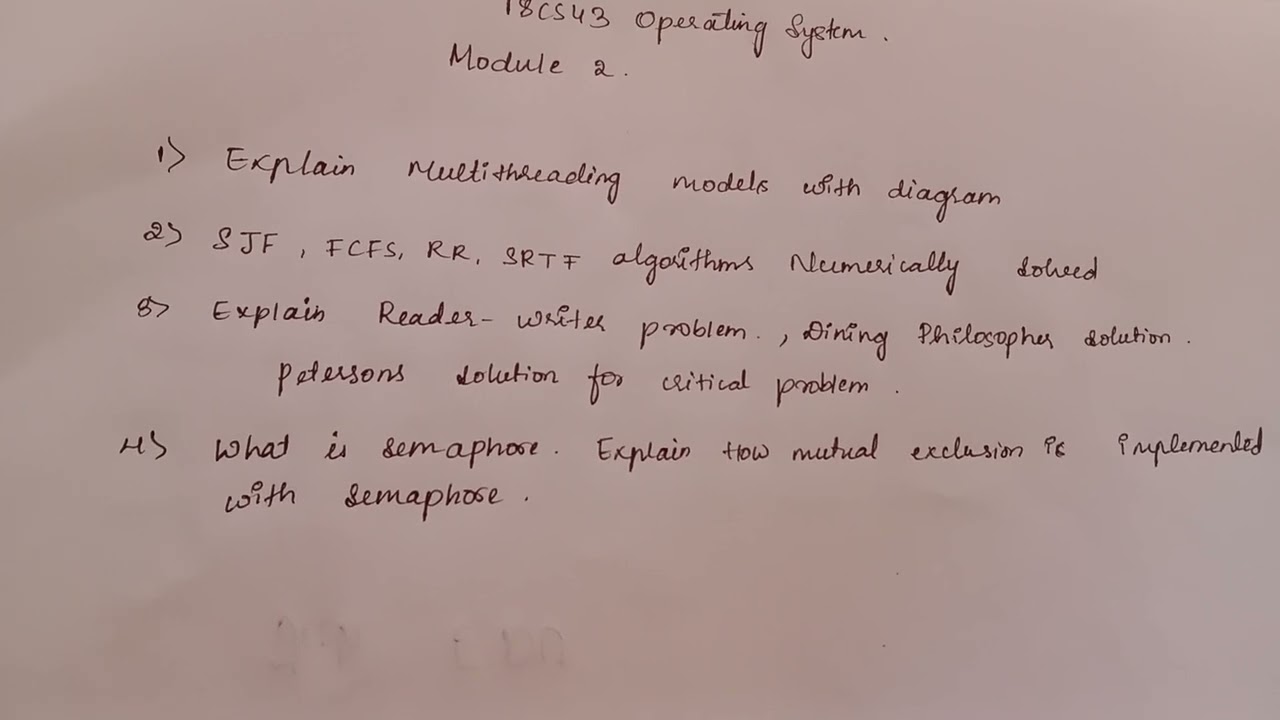 18CS43 Operating System.
Module 2.
1) Explain Multithreading models with diagram
2) SJF, FCFS, RR, SRTF algorithms Numerically solved
3) Explain Reader-writer problem., Dining Philosopher solution.
Petersons solution for critical problem.
4) What is semaphore. Explain How mutual exclusion is implemented
with semaphore.